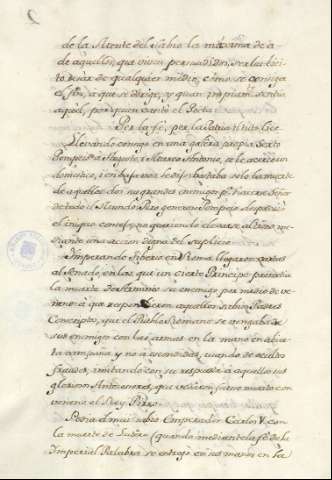 de la Mente del Sabio la máxima de a-
de aquellos, que viven persuadidos, ser las licito
usar de qualquier medio, como se consiga
el fin, a que se dirige, y quan propiam. sentia
aquel, por quien cantó el Poeta
Per la fe, per la Patria il tutto lice.
Llevando consigo en una galera propia Sexto
Pompeio a Augusto, i Marco Antonio, se le acercó un
domestico, i en baja voz le dijo bastaba solo la muerte
de aquellos dos sus grandes enemigos p.ª hacerse Señor
de todo el Mundo. Pero generoso Pompeio despreció
el iniquo consejo, no queriendo elevarse al Trono me-
diante una accion digna del suplicio.
Imperando Tiberio en Roma llegaron cartas
al Senado, en las que un cierto Principe prometia
la muerte de Arminio su enemigo por medio de ve-
neno: á que respondieron aquellos sabios Padres
Conscriptos, que el Pueblo Romano se vengaba de
sus enemigos con las armas en la mano en abier-
ta campaña, y no á escondidas, usando de ocultos
fraudes, imitando con su respuesta á aquellos sus
gloriosos Antecesores, que no quisieron muerto con
veneno el Rey Pirro.
Podia el mui sabio Emperador Carlos V. con
la muerte de Lutero (quando mediante la fe de la
Imperial Palabra se entregó en sus manos en la